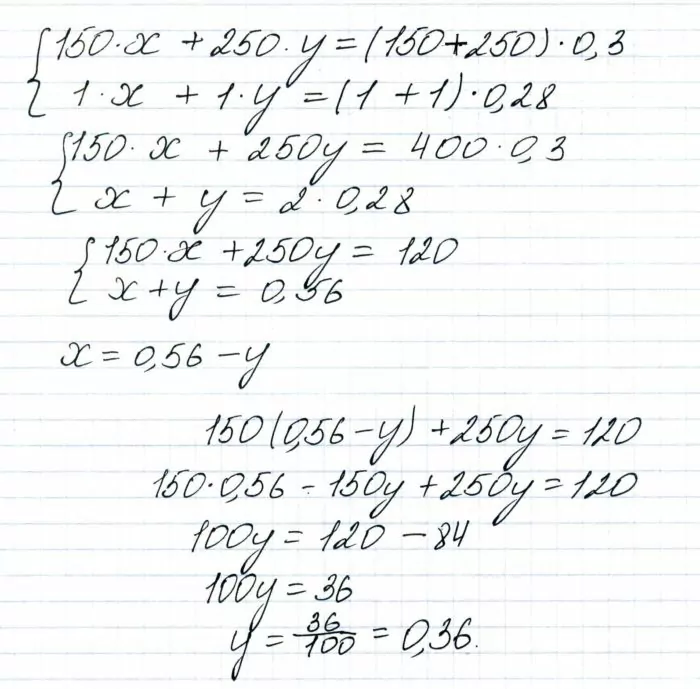 150·x + 250·y = (150+250)·0,3
1·x + 1·y = (1 + 1)·0,28
150·x + 250y = 400·0,3
x + y = 2·0,28
150·x + 250y = 120
x+y = 0,56
x = 0,56 - y
150(0,56 - y) + 250y = 120
150·0,56 - 150y + 250y = 120
100y = 120 - 84
100y = 36
y = 36/100 = 0,36.